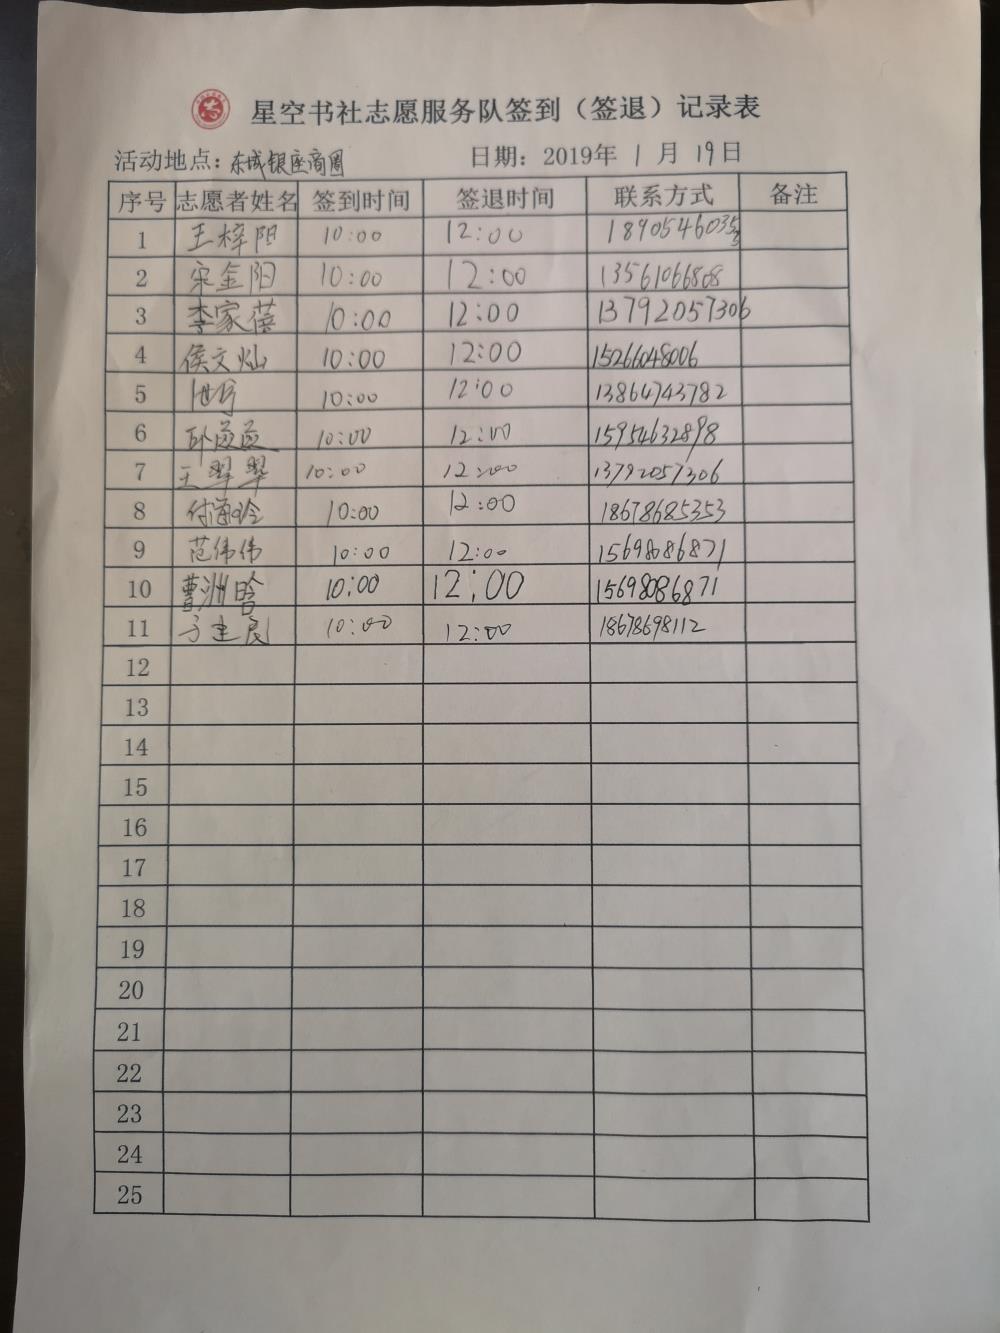 星空书社志愿服务队签到（签退）记录表
活动地点：东城银座商圈 日期：2019年 1 月 19日
序号 志愿者姓名 签到时间 签退时间 联系方式 备注
1 王梓阳 10:00 12:00 18905460353
2 宋金阳 10:00 12:00 13561066808
3 李家蓓 10:00 12:00 13792057306
4 侯文灿 10:00 12:00 15266048006
5 10:00 12:00 13864743782
6 10:00 12:00 15954632898
7 王翠翠 10:00 12:00 13792057306
8 10:00 12:00 18678685353
9 范伟伟 10:00 12:00 15698086871
10 曹洲晗 10:00 12:00 15698086871
11 10:00 12:00 18678698112
12
13
14
15
16
17
18
19
20
21
22
23
24
25